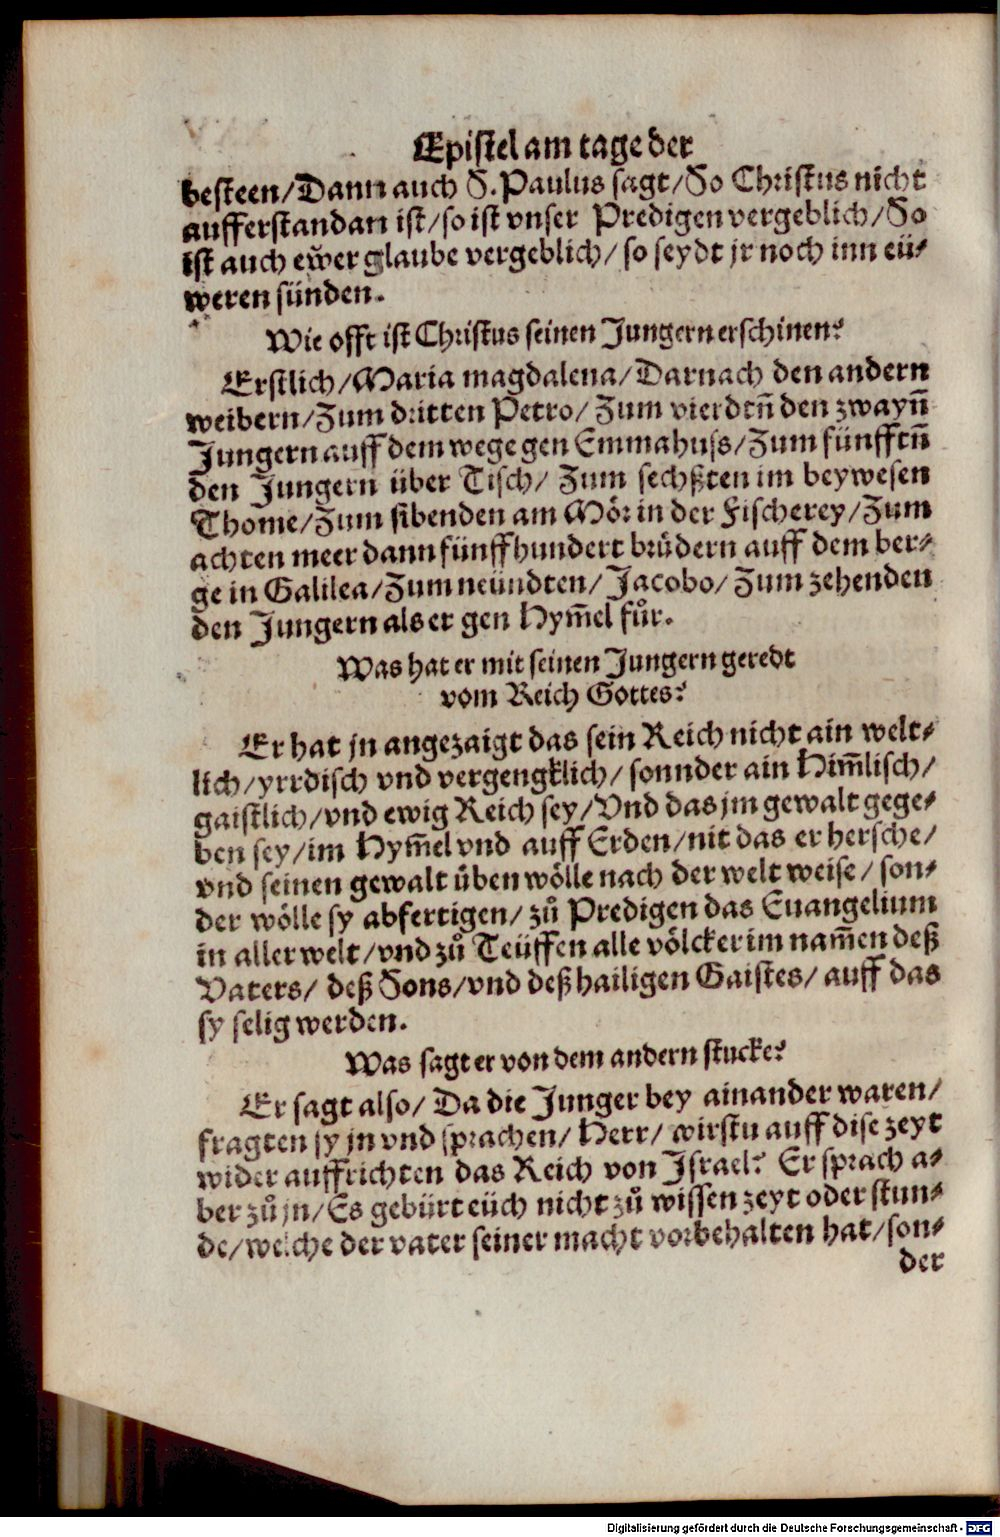 Epistel am tage der
besteen/Dann auch S. Paulus sagt/So Christus nicht
aufferstandan ist/so ist vnser Predigen vergeblich/So
ist auch ewer glaube vergeblich/ so seydt jr noch inn eü⸗
weren sünden.
Wie offt ist Christus seinen Jungern erschinen?
Erstlich/Maria magdalena/Darnach den andern
weibern/Zum dritten Petro/Zum vierdtn̄ den zwayn̄
Jungern auff dem wege gen Emmahuss/Zum fünfftn̄
den Jungern über Tisch/ Zum sechßten im beywesen
Thome/Zum sibenden am Mör in der Fischerey/Zum
achten meer dann fünffhundert brůdern auff dem ber⸗
ge in Galilea/Zum neündten/ Jacobo/Zum zehenden
den Jungern als er gen Hym̄el fůr.
Was hat er mit seinen Jungern geredt
vom Reich Gottes?
Er hat jn angezaigt das sein Reich nicht ain welt⸗
lich/yrrdisch vnd vergengklich/ sonnder ain Him̄lisch/
gaistlich/vnd ewig Reich sey/Vnd das jm gewalt gege⸗
ben sey/im Hym̄el vnd auff Erden/nit das er hersche/
vnd seinen gewalt üben wölle nach der welt weise/ son⸗
der wölle sy abfertigen/ zů Predigen das Euangelium
in aller welt/vnd zů Teüffen alle völcker im nam̄en deß
Vaters/ deß Sons/vnd deß hailigen Gaistes/ auff das
sy selig werden.
Was sagt er von dem andern stucke?
Er sagt also/ Da die Junger bey ainander waren/
fragten sy jn vnd sprachen/ Herr/ wirstu auff dise zeyt
wider auffrichten das Reich von Jsrael? Er sprach a⸗
ber zů jn/Es gebürt eüch nicht zů wissen zeyt oder stun⸗
de/welche der vater seiner macht vorbehalten hat/son⸗
der
Digitalisierung gefördert durch die Deutsche Forschungsgemeinschaft - DFG